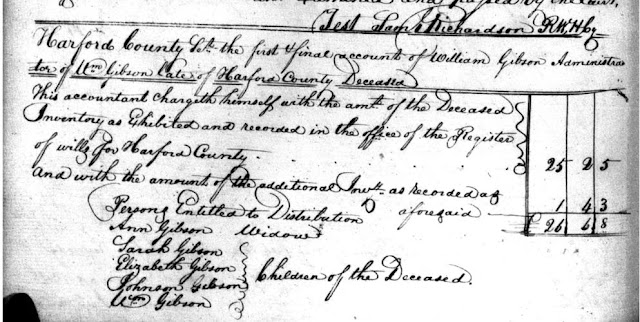 and passed by the Court,
Test Saml Richardson R.W.H.Cy
Harford County Sct. the first & final account of William Gibson Administra
tor of Wm Gibson Late of Harford County Deceased
This accountant chargeth himself with the amt. of the Deceased
Inventory as Exhibited and recorded in the office of the Register
of wills for Harford County. 25 2 5
And with the amount of the additional Invty. as recorded as
aforesaid 1 4 3
£ 26 6 8
Persons Entitled to Distribution
Ann Gibson Widow
Sarah Gibson
Elizabeth Gibson
Johnson Gibson
Wm Gibson
Children of the Deceased.